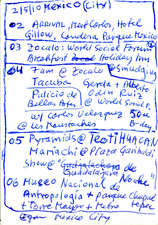 2/5/10 Mexico (City)
02 ARRIVAL Meet Carlos Hotel
Gillow, Londres Parque Mexico
03 Zocalo: World Social Forum
Breakfast Holiday Inn
04 7am @ Zocalo Smudging
Tacuba Gerda + Alberto
Palicio de Ruiz
Bellas Artes @ World S.F.
w/ Carlos Velazquez 50th
@ Les Moustaches B-day
05 Pyramids @ TEOTIHUACAN
Mariachi @ Plaza Garibaldi
Show @ "Guadalajara
de Noche"
06 Museo Nacional de
Antropologia + parque Chapul
+ Torre Mayor + Metro
Mexico City